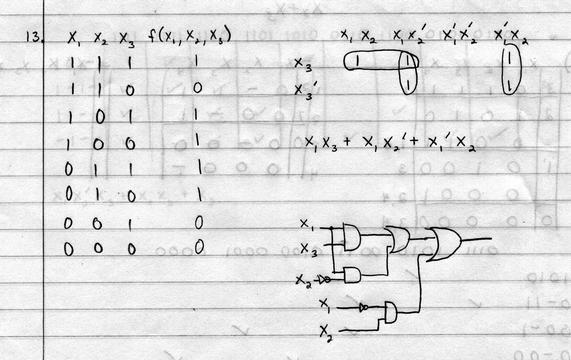 13. X₁ X₂ X₃ f(X₁, X₂, X₃)
1 1 1 1
1 1 0 0
1 0 1 1
1 0 0 1
0 1 1 1
0 1 0 1
0 0 1 0
0 0 0 0
X₁ X₂ X₁X₂' X₁'X₂' X₁'X₂
X₃ 1 1 1
X₃' 1 1
X₁X₃ + X₁X₂' + X₁'X₂
X₁
X₃
X₂
X₁
X₂